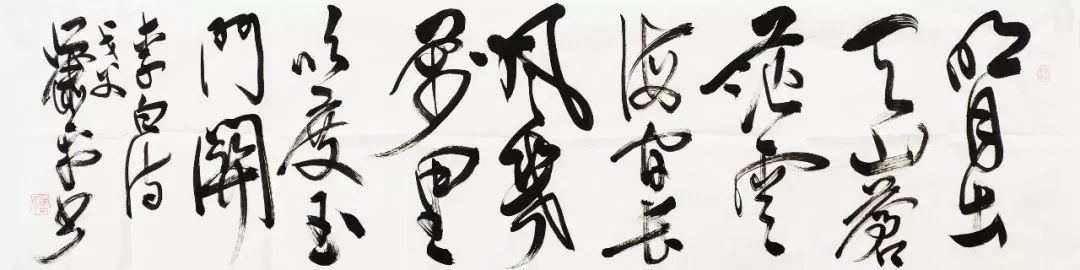 明月出
天山蒼
茫雲
海間長
風幾
萬里
吹度玉
門關
李白詩